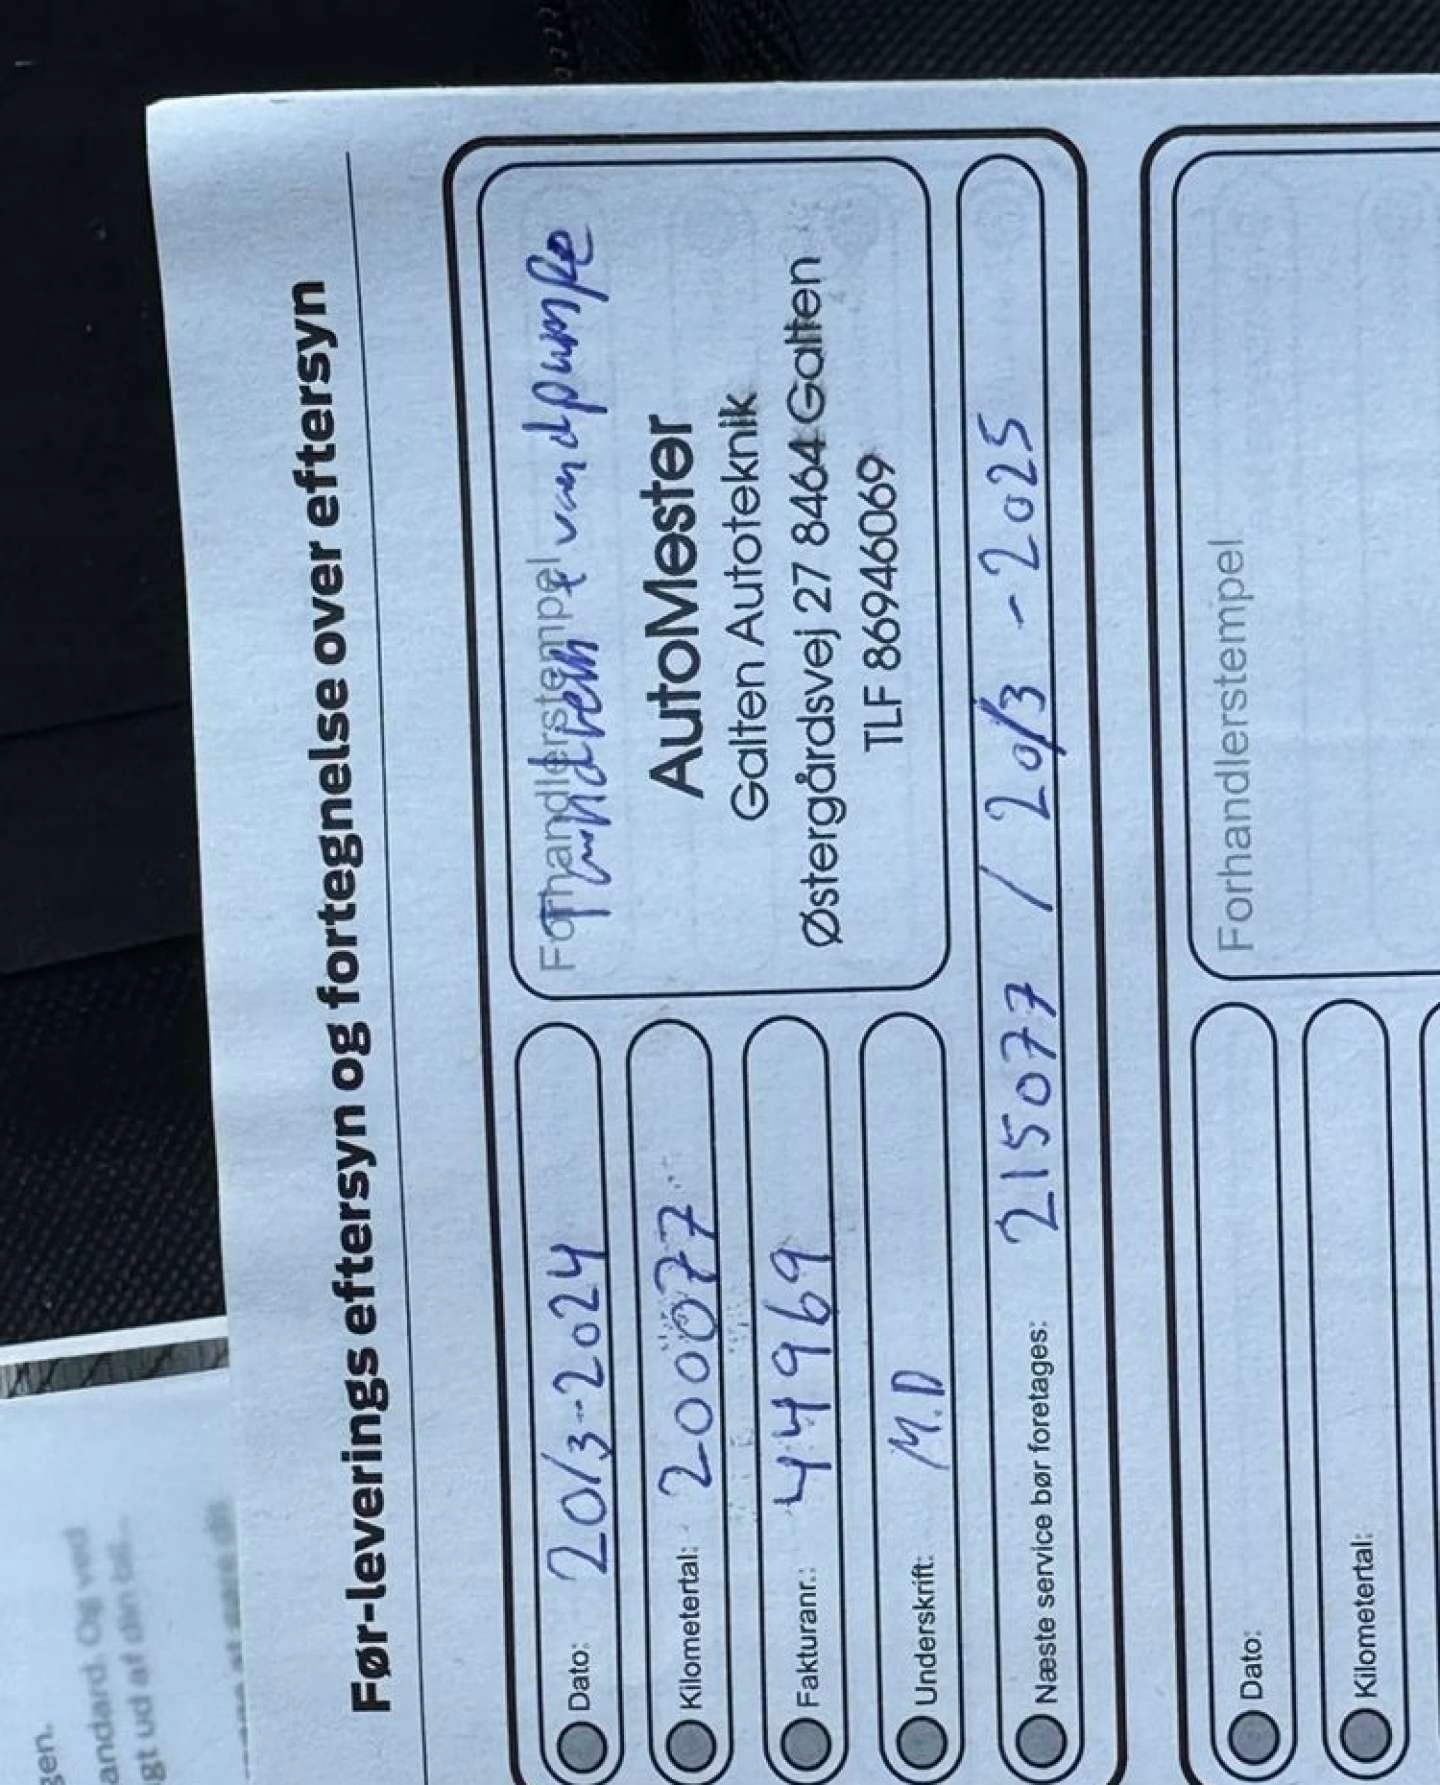 Før-leverings eftersyn og fortegnelse over eftersyn
Dato: 20/3-2024
Kilometertal: 200077
Fakturanr.: 44969
Underskrift: M.D
Næste service bør foretages: 215077 / 20/3 - 2025
Forhandlerstempel
Tandrem + vandpumpe
AutoMester
Galten Autoteknik
Østergårdsvej 27 8464 Galten
TLF 86946069
Dato:
Kilometertal:
Forhandlerstempel
gen.
andard. Og ved
gt ud af din bil..